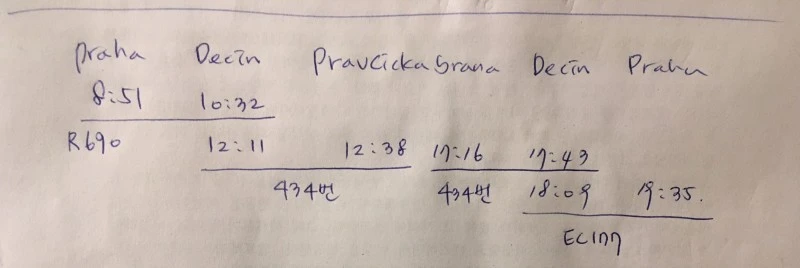 Praha Decin Pravcicka brana Decin Praha
8:51 10:32
R690 12:11 12:38 17:16 17:43
434번 434번 18:09 19:35.
EC177